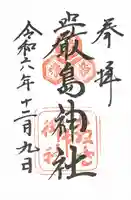 奉拝
嚴島神社
令和六年十二月九日